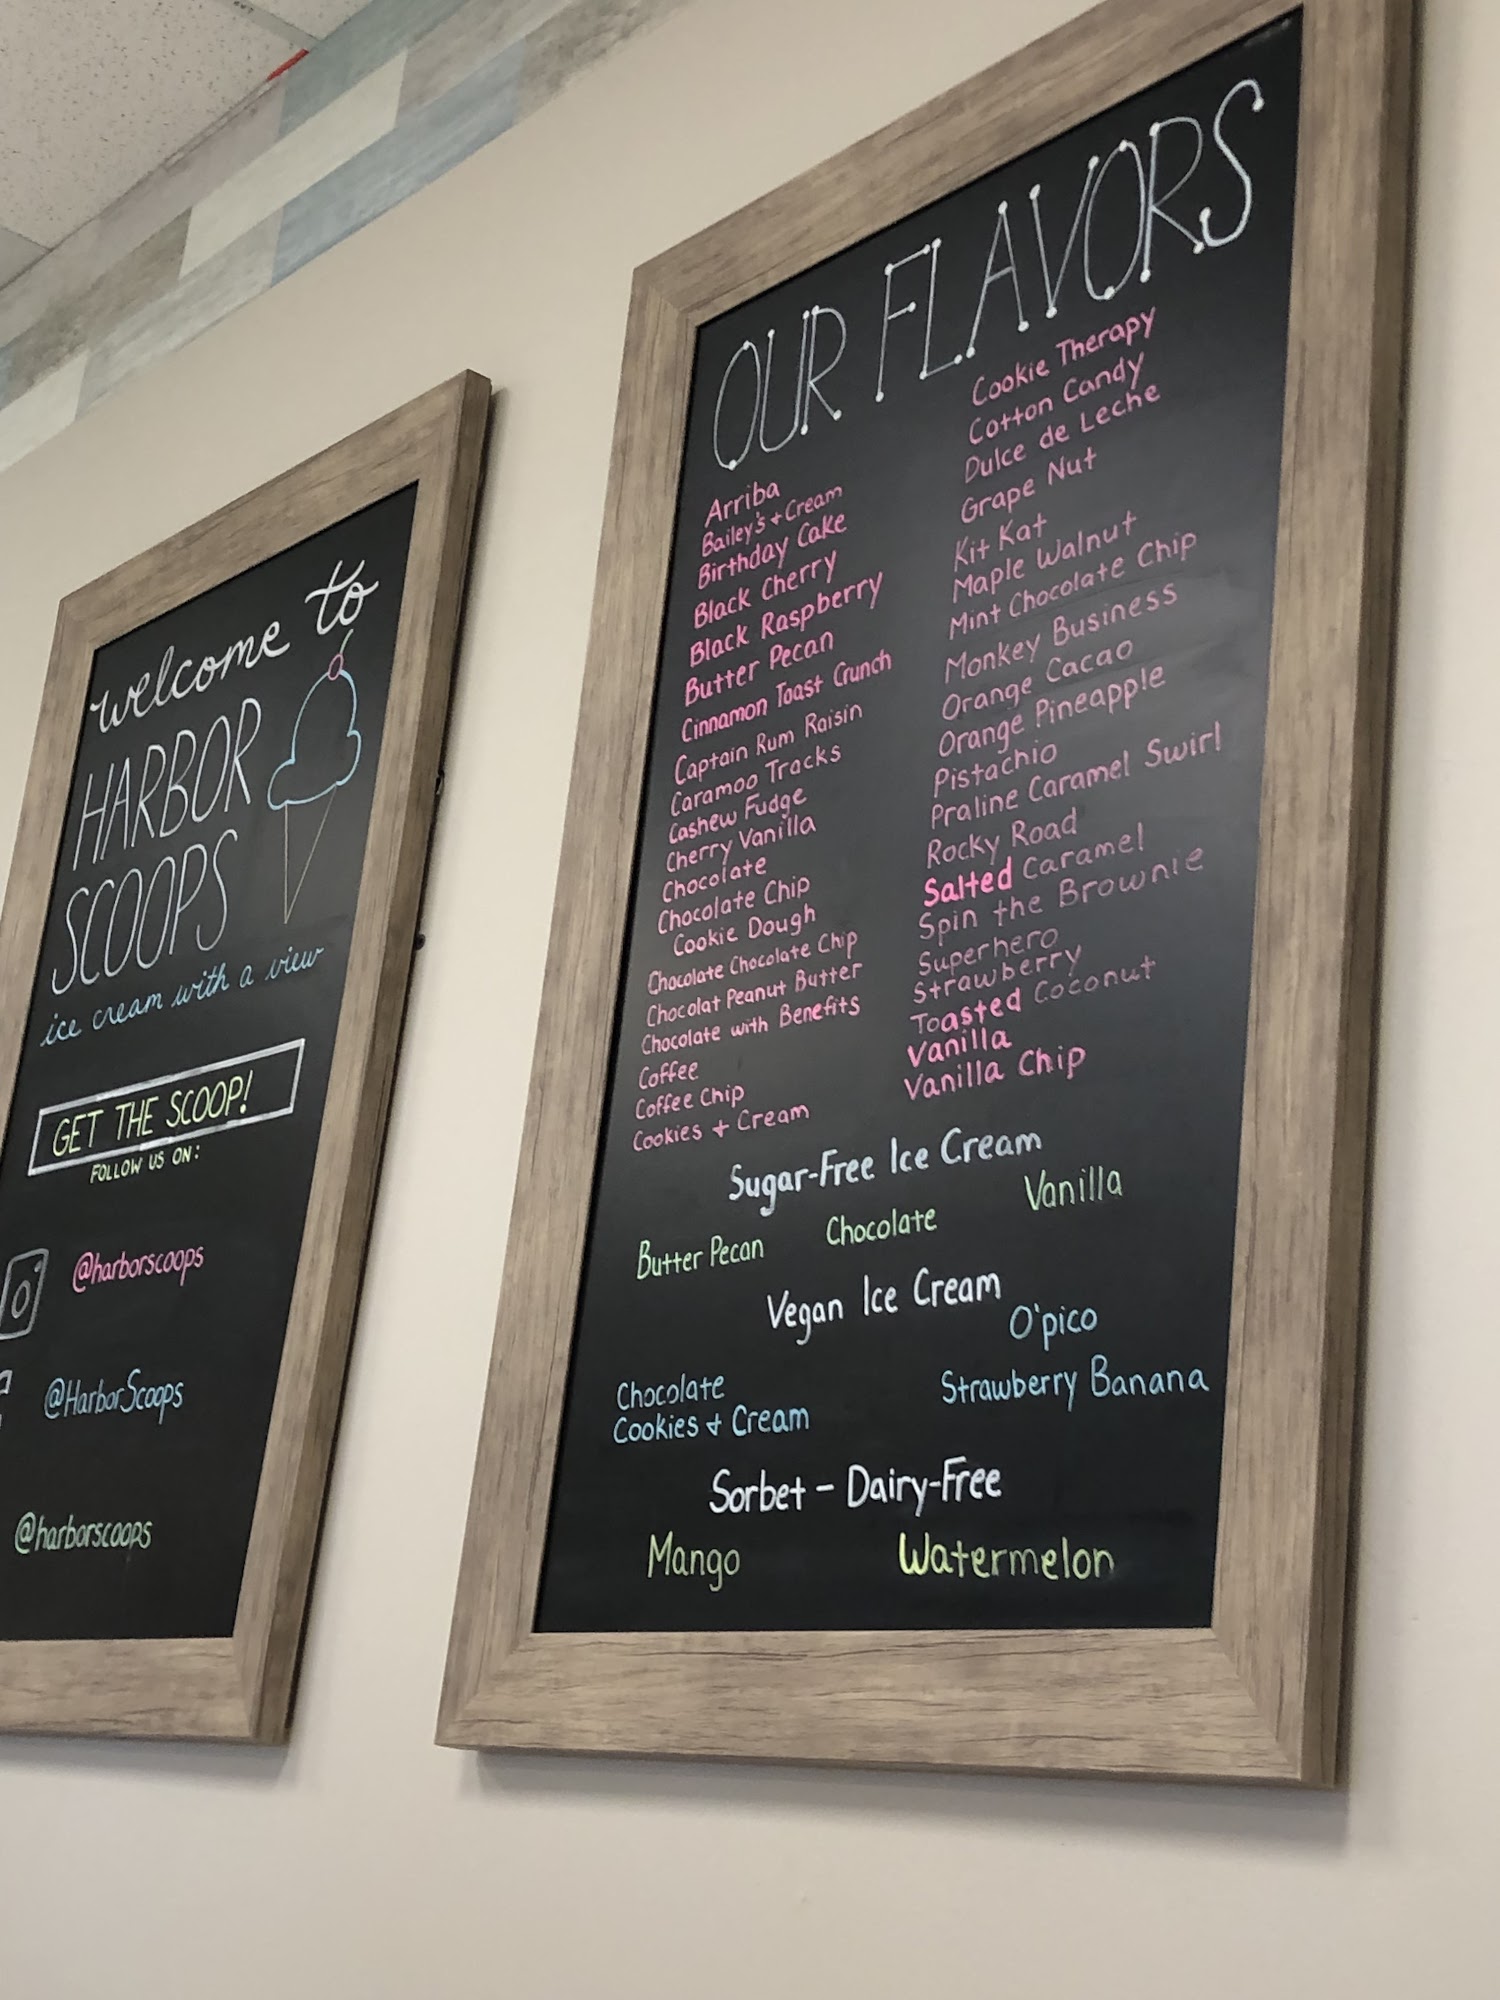 welcome to
HARBOR
SCOOPS
ice cream with a view
GET THE SCOOP!
FOLLOW US ON:
@harborscoops
@HarborScoops
@harborscoops
OUR FLAVORS
Arriba
Bailey's + Cream
Birthday Cake
Black Cherry
Black Raspberry
Butter Pecan
Cinnamon Toast Crunch
Captain Rum Raisin
Caramoo Tracks
Cashew Fudge
Cherry Vanilla
Chocolate
Chocolate Chip
Cookie Dough
Chocolate Chocolate Chip
Chocolat Peanut Butter
Chocolate with Benefits
Coffee
Coffee Chip
Cookies + Cream
Cookie Therapy
Cotton Candy
Dulce de Leche
Grape Nut
Kit Kat
Maple Walnut
Mint Chocolate Chip
Monkey Business
Orange Cacao
Orange Pineapple
Pistachio
Praline Caramel Swirl
Rocky Road
Salted Caramel
Spin the Brownie
Superhero
Strawberry
Toasted Coconut
Vanilla
Vanilla Chip
Sugar-Free Ice Cream
Butter Pecan Chocolate Vanilla
Vegan Ice Cream
Chocolate
Cookies + Cream
O'pico
Strawberry Banana
Sorbet - Dairy-Free
Mango Watermelon